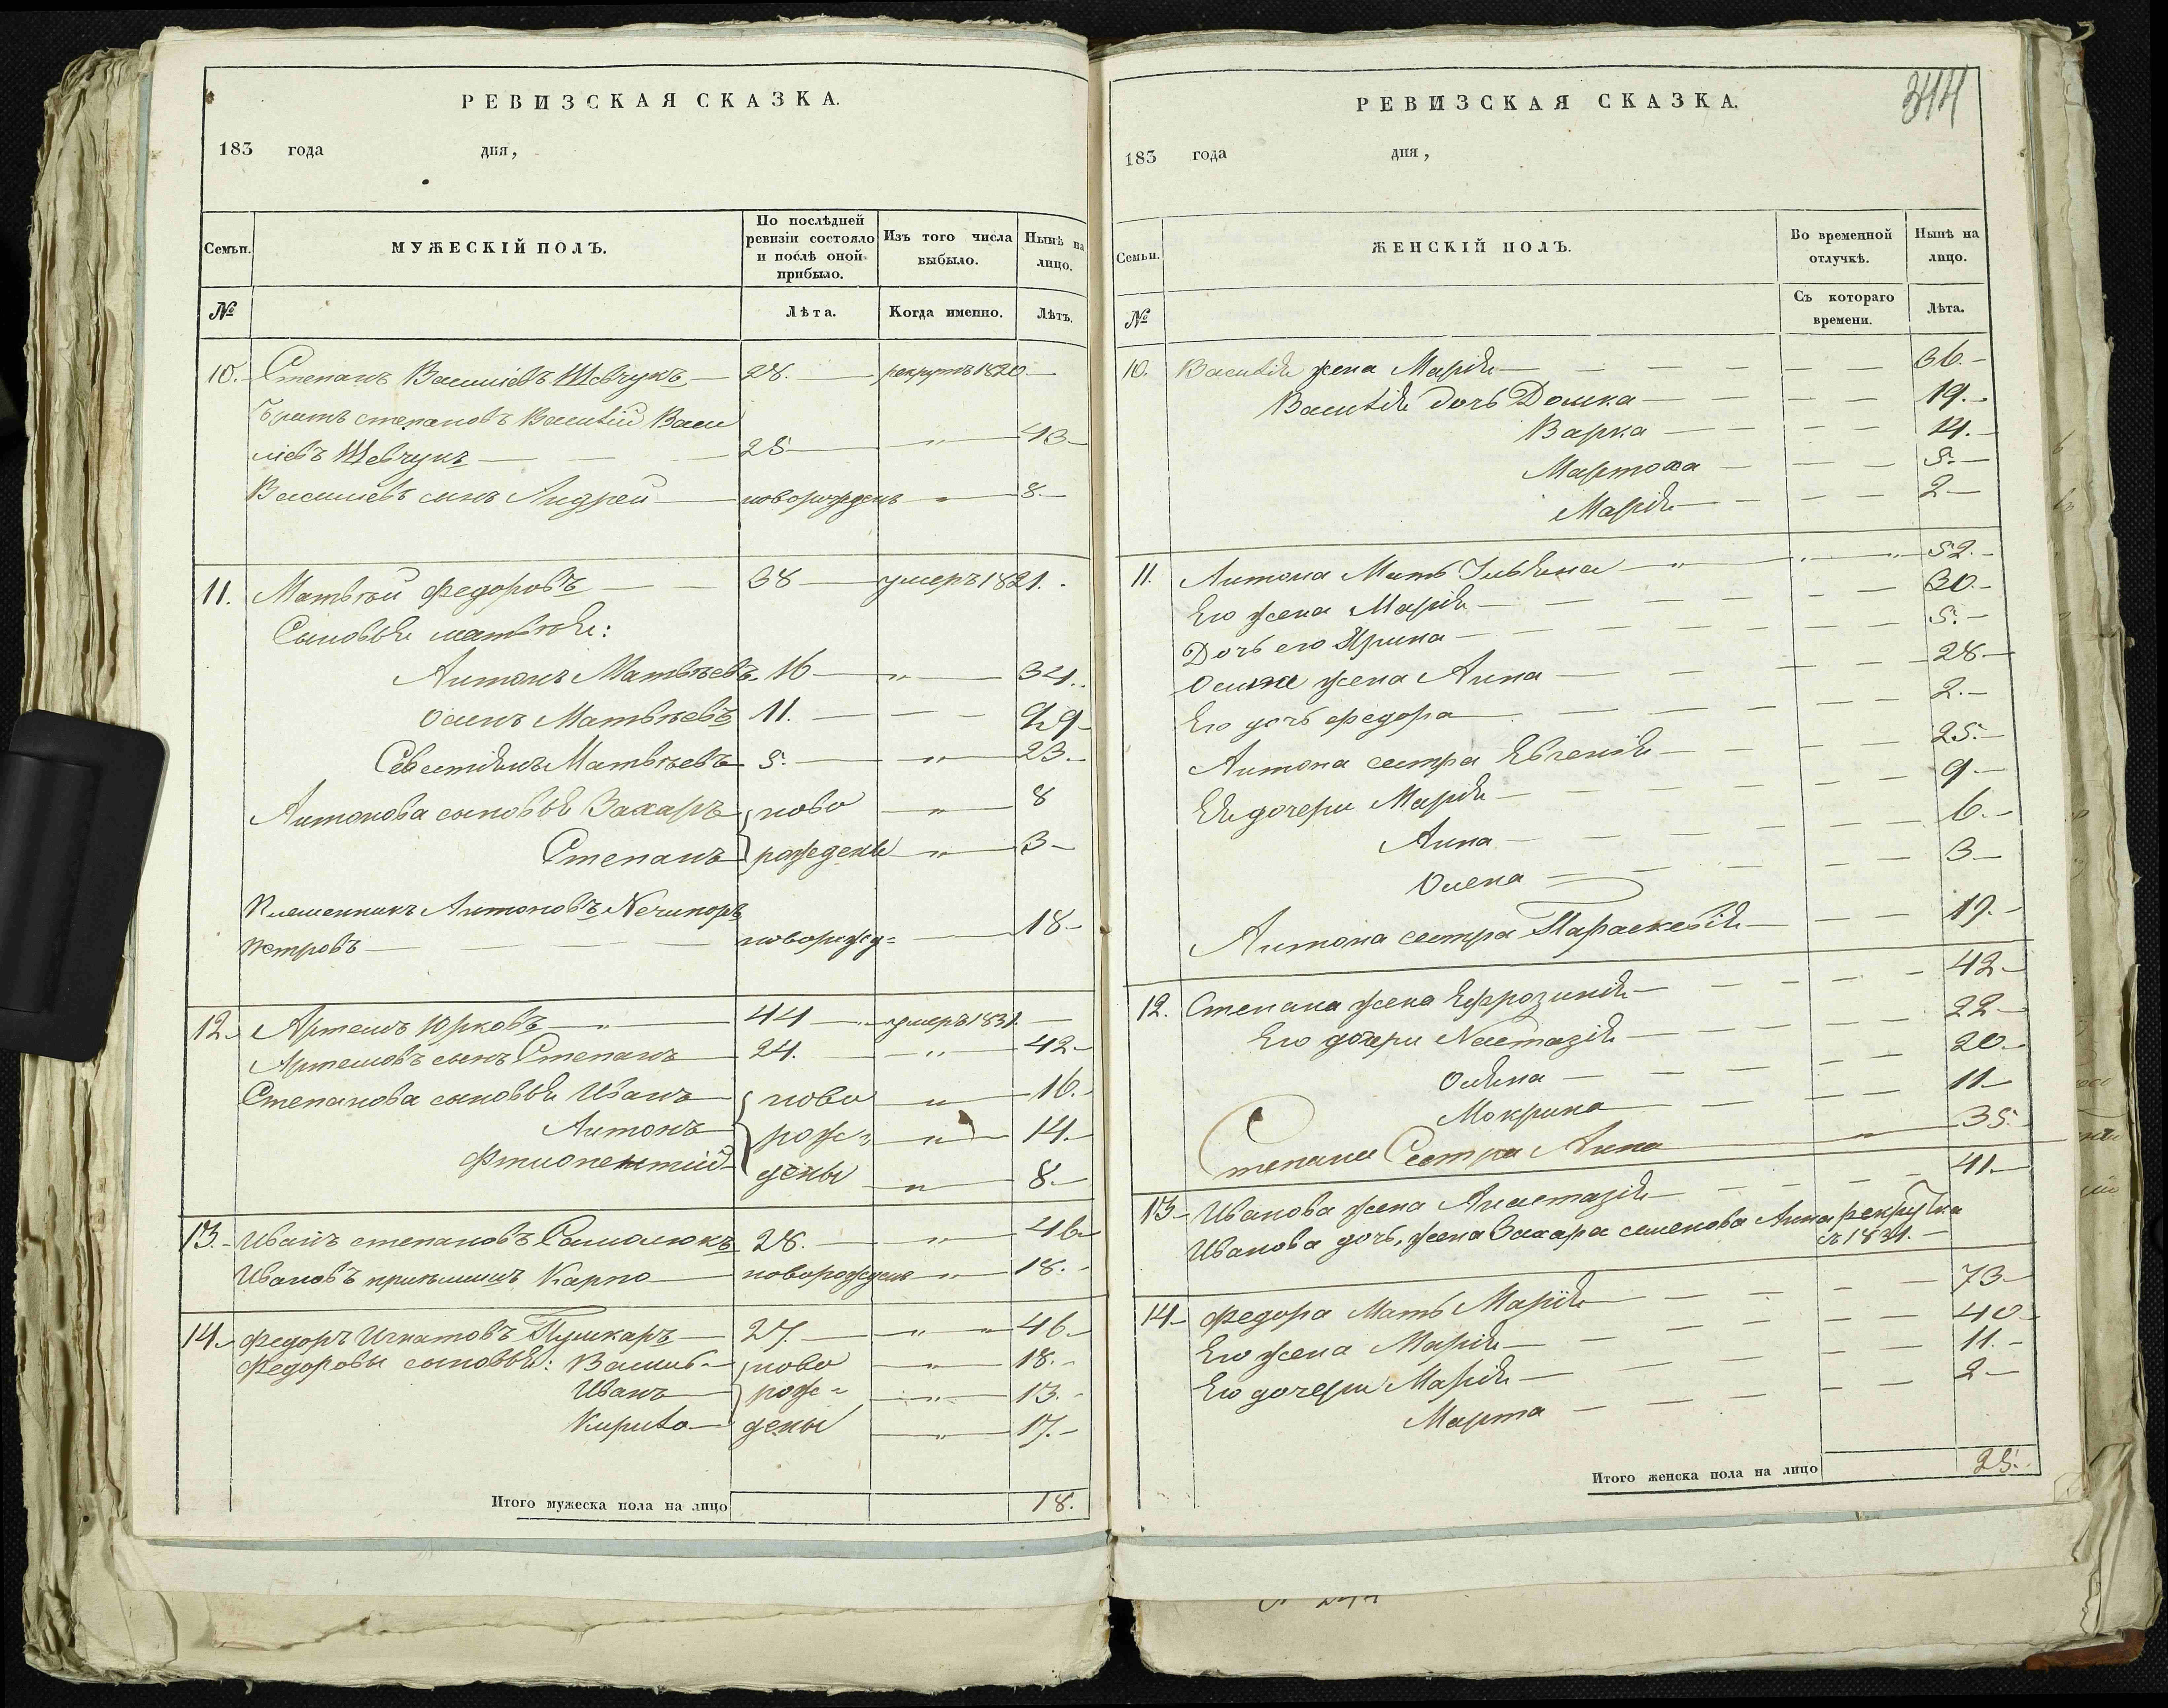 РЕВИЗСКАЯ СКАЗКА.
183 года дня,
Семьи. МУЖЕСКІЙ ПОЛЪ. По послѣдней ревизіи состояло и послѣ оной прибыло. Изъ того числа выбыло. Нынѣ на лицо.
№ Лѣта. Когда именно. Лѣтъ.
10. Степанъ Василіевъ Шевчукъ 28. рекрутъ 1820
Братъ степановъ Василій Васи
ліевъ Шевчукъ 25 " 43
Василіевъ сынъ Андрей новорожденъ 8
11. Матвѣй Федоровъ 38 умеръ 1821.
Сыновья матвѣя:
Антонъ Матвѣевъ 16 " 34.
Осипъ Матвѣевъ 11. 29
Севестіянъ Матвѣевъ 5. " 23.
Антонова сыновья Захаръ ново " 8
Степанъ рождены " 3
Племенникъ Антоновъ Нечипоръ
Петровъ новорожд= 18
12. Артемъ Юрковъ " 44 умеръ 1831.
Артемовъ сынъ Степанъ 24. " 42
Степанова сыновья Иванъ ново " 16.
Антонъ рож= " 14.
дены " 8.
13. Иванъ степановъ Самолюкъ 28. " 46
Ивановъ пріемышъ Карпо новорожденъ " 18.
14. Федоръ Игнатовъ Пушкаръ 27. " " 46.
Федоровы сыновья: Василь ново " 18.
Иванъ рож= " 13.
Кирило дены " 17.
Итого мужеска пола на лицо 18.
344
РЕВИЗСКАЯ СКАЗКА.
183 года дня,
Семьи. ЖЕНСКІЙ ПОЛЪ. Во временной отлучкѣ. Нынѣ на лицо.
№ Съ котораго времени. Лѣта.
10. Василія жена Марія 36.
Василія дочь Домка 19.
Варка 14.
Мартоха 5.
Марія 2
11. Антона Мать Ульяна " " " 52.
Его жена Марія 30.
Дочь его Ярина 5.
Осипа жена Анна 28
Его дочь федора 2.
Антона сестра Евгенія 25.
Ея дочери Марія 9.
Анна 6.
Олена 3
Антона сестра Параскевія 19.
12. Степана жена Ефрозинія 42
Его дочери Настазія 22
Оляна 20.
Мокрина 11
Степана Сестра Анна " 35.
13 Иванова жена Анастазія 41.
Иванова дочь, жена Захара семенова Анна рекрутка
съ 1834.
14 Федора Мать Марія 73
Его жена Марія 40
Его дочери Марія 11.
Марта 2
Итого женска пола на лицо 25.